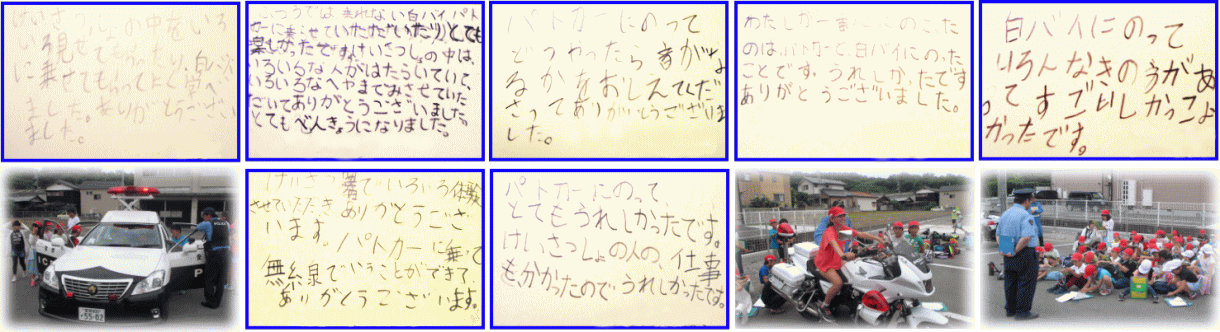 けいさつしょの中をいろ
いろ見せてもらったり、白バイ
に乗せてもらって
ました。ありがとうござい
ました。
ふつうでは乗れない白バイ、パト
カーに乗させていただいたり、とても
楽しかったです。けいさつしょの中は、
いろいろな人がはたらいていて、
いろいろなへやまでみさせていた
だいてありがとうございました。
とてもべんきょうになりました。
パトカーにのって
どうやったら音がな
るかをおしえてくだ
さってありがとうございま
した。
わたしが一番
のはパトカーと、白バイにのった
ことです。うれしかったです
ありがとうございました。
白バイにのって
いろんなきのうがあ
ってすごいしかっこよ
かったです。
けいさつ署でいろいろ体験
させていただきありがとうござ
います。パトカーに乗って
無線でいうことができて
ありがとうございます。
パトカーにのって、
とてもうれしかったです。
けいさつしょの人の、仕事
もわかったのでうれしかったです。
55-02